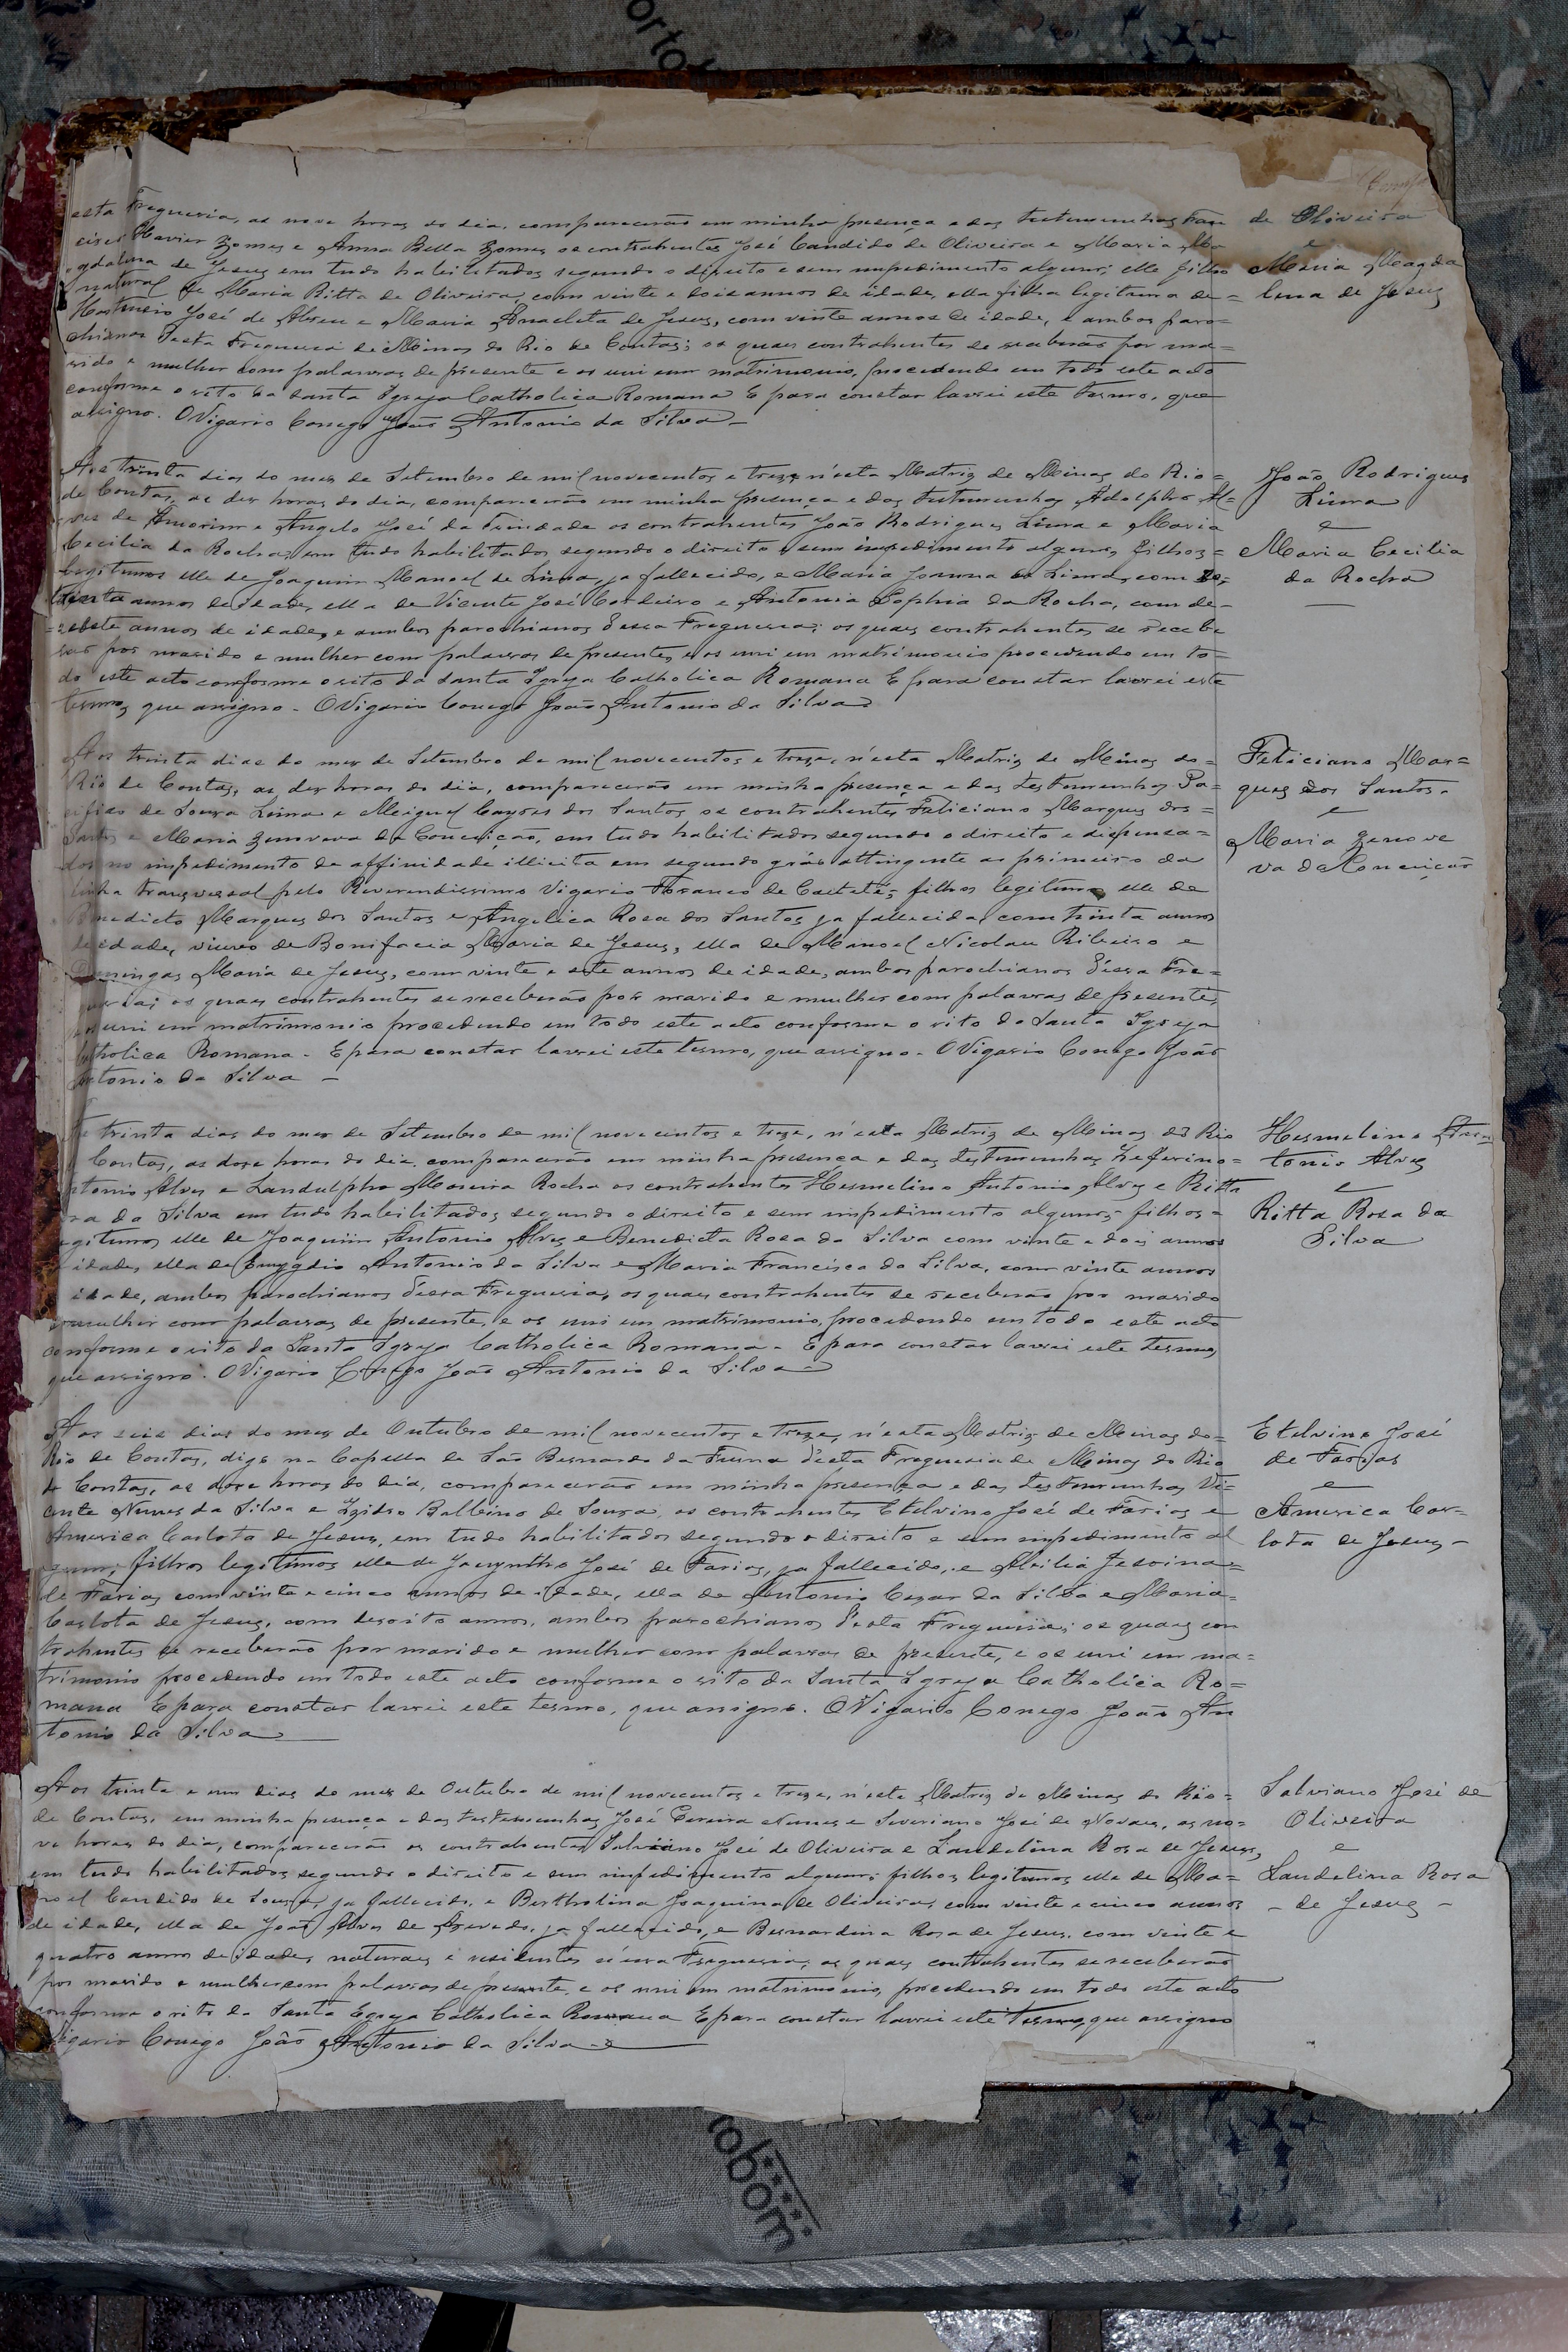 esta Freguesia, as nove horas do dia, comparecerão em minha presença e das testemunhas Fran
cisco Xavier Gomes e Anna Bella Gomes os contrahentes José Candido de Oliveira e Maria Ma
gdalena de Jesus em tudo habilitados segundo o direito e sem impedimento algum; elle filho
natural de Maria Ritta de Oliveira, com vinte e dois annos de idade, ella filha legitima de=
José de Abreu e Maria Anacleta de Jesus, com vinte annos de idade, e ambos paro=
chianos desta Freguesia de Minas do Rio de Contas; os quaes contrahentes se receberão por ma=
rido e mulher com palavras de presente e os uni em matrimonio, procedendo em todo este acto
conforme o rito da Santa Igreja Catholica Romana E para constar lavrei este termo, que
assigno. O Vigario Conego João Antonio da Silva-
de Oliveira
e
Maria Magda
lena de Jesus
Aos trinta dias do mez de Setembro de mil novecentos e treze, n'esta Matriz de Minas do Rio=
de Contas, as dez horas do dia, comparecerão em minha presença e das testemunhas Adolpho Al=
ves de Amorim e Angelo José da Trindade os contrahentes João Rodrigues Lima e Maria
Cecilia da Rocha, em tudo habilitados segundo o direito e sem impedimento algum, filhos=
legitimos elle de Joaquim Manoel de Lima, ja fallecido, e Maria Joanna de Lima, com
annos de idade, ella de Vicente José Cordeiro e Antonia Sophia da Rocha, com de-
=sete annos de idade, e ambos parochianos dessa Freguesia; os quaes contrahentes se recebe
rão por marido e mulher com palavras de presente, e os uni em matrimonio procedendo em to=
do este acto conforme o rito da Santa Igreja Catholica Romana E para constar lavrei este
termo, que assigno - O Vigario Conego João Antonio da Silva
João Rodrigues
Lima
e
Maria Cecilia
da Rocha
Aos trinta dias do mez de Setembro de mil novecentos e treze, n'esta Matriz de Minas do=
Rio de Contas, as dez horas do dia, comparecerão em minha presença e das testemunhas Pa=
cifico de Souza Lima e Meiguel dos Santos os contrahentes Feliciano Marques dos=
Santos e Maria Zenoveva da Conceição, em tudo habilitados segundo o direito e dispensa=
dos no impedimento de affinidade illicita em segundo gráo attingente ao primeiro da
linha transversal pelo Reverendissimo Vigario Foraneo de Caeteté; filhos legitimos elle de
Benedicto Marques dos Santos e Angelica Rosa dos Santos, ja fallecida, com trinta annos
de idade, viuvo de Bonifacia Maria de Jesus, ella de Manoel Nicolau Ribeiro e
Domingas Maria de Jesus, com vinte e sete annos de idade, ambos parochianos d'essa Fre=
guesia; os quaes contrahentes se receberão por marido e mulher com palavras de presente,
e os uni em matrimonio procedendo em todo este acto conforme o rito da Santa Igreja
Catholica Romana - E para constar lavrei este termo, que assigno - O Vigario Conego João
Antonio da Silva -
Feliciano Mar=
ques dos Santos-
e
Maria Zenove
va da Conceição
trinta dias do mez de Setembro de mil novecentos e treze, n'esta Matriz de Minas do Rio
Contas, as doze horas do dia, comparecerão em minha presença e das testemunhas Zeferino=
Antonio Alves e Landulpho Moreira Rocha os contrahentes Hermelino Antonio Alves e Ritta
Rosa da Silva em tudo habilitados segundo o direito e sem impedimento algum; filhos=
legitimos elle de Joaquim Antonio Alves e Benedicta Rosa da Silva com vinte e dois annos
idade, ella de Emygdio Antonio da Silva e Maria Francisca da Silva, com vinte annos
idade, ambos parochianos d'essa Freguesia, os quaes contrahentes se receberão por marido
e mulher com palavras de presente, e os uni em matrimonio, procedendo em todo este acto
conforme o rito da Santa Igreja Catholica Romana - E para constar lavrei este termo,
que assigno. O Vigario Conego João Antonio da Silva
Hermelino An
tonio Alves
e
Ritta Rosa da
Silva
Aos seis dias do mez de Outubro de mil novecentos e treze, n'esta Matriz de Minas do=
Rio de Contas, digo na Capella de São Bernardo da Furna d'esta Freguesia de Minas do Rio
de Contas, as doze horas do dia, comparecerão em minha presença e das testemunhas Vi=
cente Nunes da Silva e Izidro Balbino de Souza, os contrahentes Etelvino José de Farias e
America Carlota de Jesus, em tudo habilitados segundo o direito e sem impedimento al
gum; filhos legitimos elle de Jacyntho José de Farias, ja fallecido, e Jesoina=
de Farias, com vinte e cinco annos de idade, ella de Antonio Cezar da Silva e Maria=
Carlota de Jesus, com desoito annos, ambos parochianos d'esta Freguesia; os quaes con
trahentes se receberão por marido e mulher com palavras de presente, e os uni em ma=
trimonio procedendo em todo este acto conforme o rito da Santa Igreja Catholica Ro=
mana E para constar lavrei este termo, que assigno. O Vigario Conego João An
tonio da Silva
Etelvino José
de Farias
e
America Car=
lota de Jesus-
Aos trinta e um dias do mez de Outubro de mil novecentos e treze, n'esta Matriz de Minas do Rio=
de Contas, em minha presença e das testemunhas José Pereira Nunes e Severiano José de Novaes, as no=
ve horas do dia, comparecerão os contrahentes Salviano José de Oliveira e Laudelina Rosa de Jesus,
em tudo habilitados segundo o direito e sem impedimento algum; filhos legitimos elle de Ma=
noel Candido de Souza, ja fallecido, e Bertholina Joaquina de Oliveira, com vinte e cinco annos
de idade, ella de João Alves de Azevedo, ja fallecido, e Bernardina Rosa de Jesus, com vinte e
quatro annos de idade, naturaes e residentes n'essa Freguesia, os quaes contrahentes se receberão
por marido e mulher com palavras de presente, e os uni em matrimonio, procedendo em todo este acto
conforme o rito da Santa Egreja Catholica Romana E para constar lavrei este Termo, que assigno
Vigario Conego João Antonio da Silva
Salviano José de
Oliveira
e
Laudelina Rosa
- de Jesus -